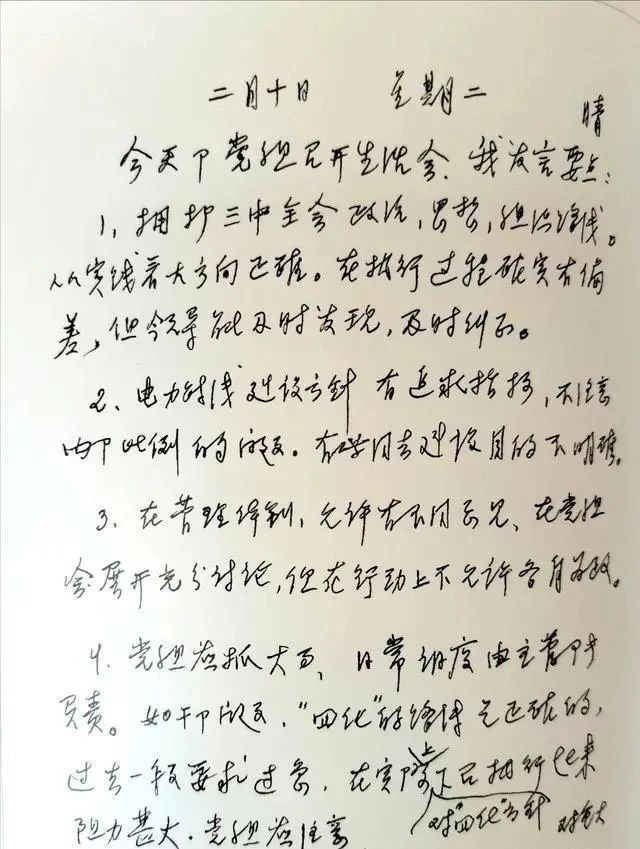 二月十日 星期二
晴
今天卩党组召开生活会.我发言要点:
1,拥护三中全会政治,思想,组织路线。
从实践看大方向正确。在执行过程确实有偏
差,但领导能及时发现,及时纠正。
2、电力战线建设方针有追求指标,不注意
内卩比例的问题。有些同志建设目的不明确。
3、在管理体制,允许有不同意见、在党组
会展开充分讨论,但在行动上不允许各自为政。
4、党组应抓大事、日常 由主管
负责。如干卩问题,"四化"的路线是正确的,
过去一般要求过急,在实际上
阻力甚大.党组应注意
对"四化"方针